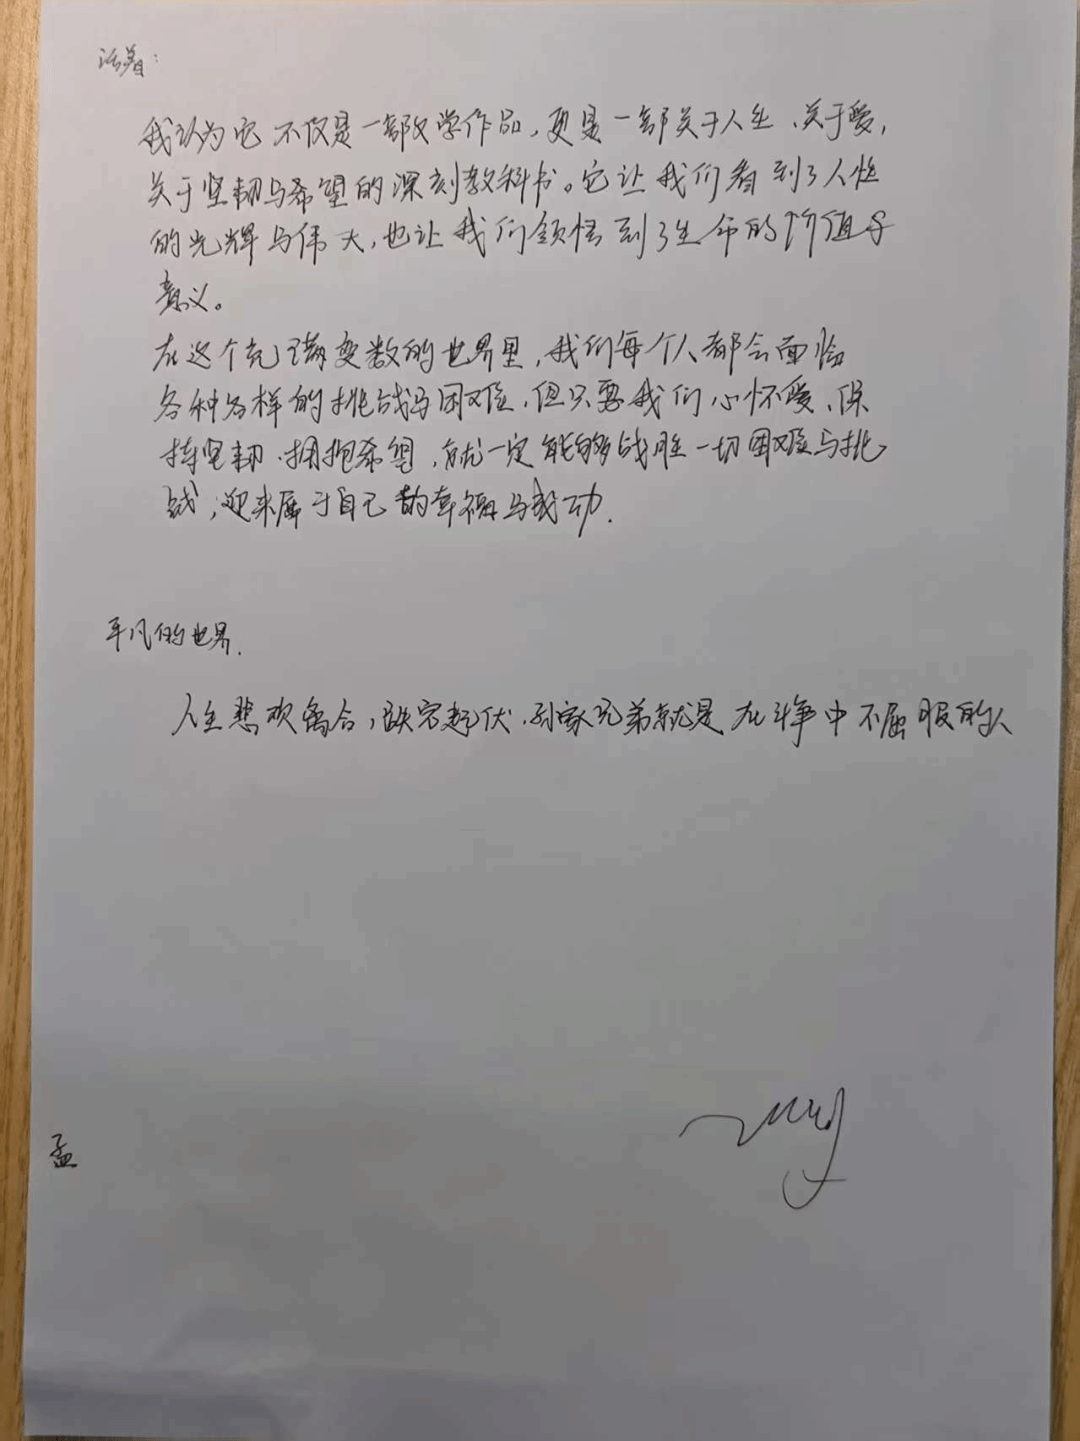 活着：
我认为它不仅是一部文学作品，更是一部关于人生、关于爱，
关于坚韧与希望的深刻教科书。它让我们看到了人性
的光辉与伟大，也让我们领悟到了生命的价值与
意义。
在这个充满变数的世界里，我们每个人都会面临
各种各样的挑战与困难，但只要我们心怀爱、保
持坚韧、拥抱希望，就一定能够战胜一切困难与挑
战，迎来属于自己的幸福与成功.
平凡的世界.
人生悲欢离合，跌宕起伏.孙家兄弟就是在斗争中不屈服的人
孟